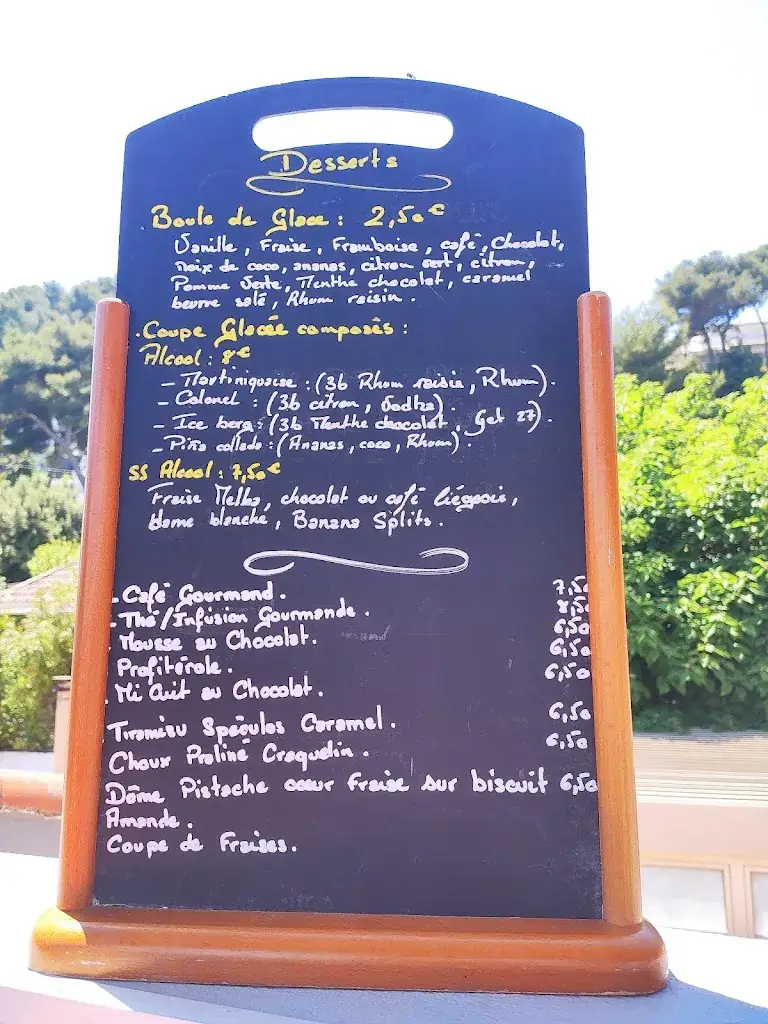 Desserts
Boule de Glace : 2,50€
Vanille, Fraise, Framboise, café, Chocolat,
Noix de coco, ananas, citron vert, citron,
Pomme Verte, Menthe chocolat, caramel
beurre salé, Rhum raisin.
.Coupe Glacée composés :
Alcool : 8€
- Martiniquaise : (3b Rhum raisin, Rhum).
- Colonel : (3b citron, Vodka).
- Ice berg : (3b Menthe chocolat, Get 27).
- Piña collada : (Ananas, coco, Rhum).
SS Alcool : 7,50€
Fraise Melba, chocolat ou café liégeois,
Dame blanche, Banana Splits.
- Café Gourmand. 7,50
- Thé/Infusion Gourmande. 8,50
. Mousse au Chocolat. 6,50
. Profiterole. 6,50
. Mi Cuit au Chocolat. 6,50
Tiramisu Spéculos Caramel. 6,50
Choux Praliné Craquelin. 6,50
Dôme Pistache coeur Fraise sur biscuit 6,50
Amande.
Coupe de Fraises.